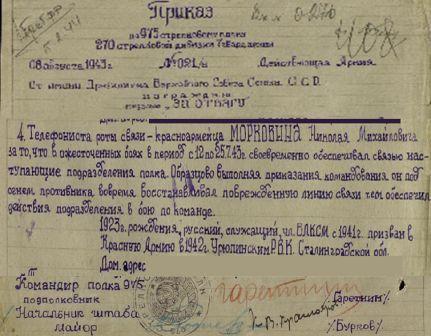 Приказ
по 975 стрелковому полку
270 стрелковой дивизии
08 августа 1943г. № 021/н Действующая Армия
От имени Президиума Верховного Совета Союза ССР
награждаю
"ЗА ОТВАГУ"
4. Телефониста роты связи - красноармейца МОРКОВИНА Николая Михайловича
за то, что в ожесточенных боях в период с 12 по 25.7.43г. своевременно обеспечивал связью нас-
тупающие подразделения полка. Образцово выполняя приказания командования он под
огнем противника вовремя восстанавливал поврежденную линию связи чем обеспечил
действия подразделения в бою по команде.
1923г. рождения, русский, служащий, чл. ВЛКСМ с 1941г. призван в
Красную Армию в 1942г. Урюпинским РВК. Сталинградской обл.
Дом. адрес
Командир полка 975
подполковник
/Гаретнин/
Начальник штаба
майор
/Бурков/